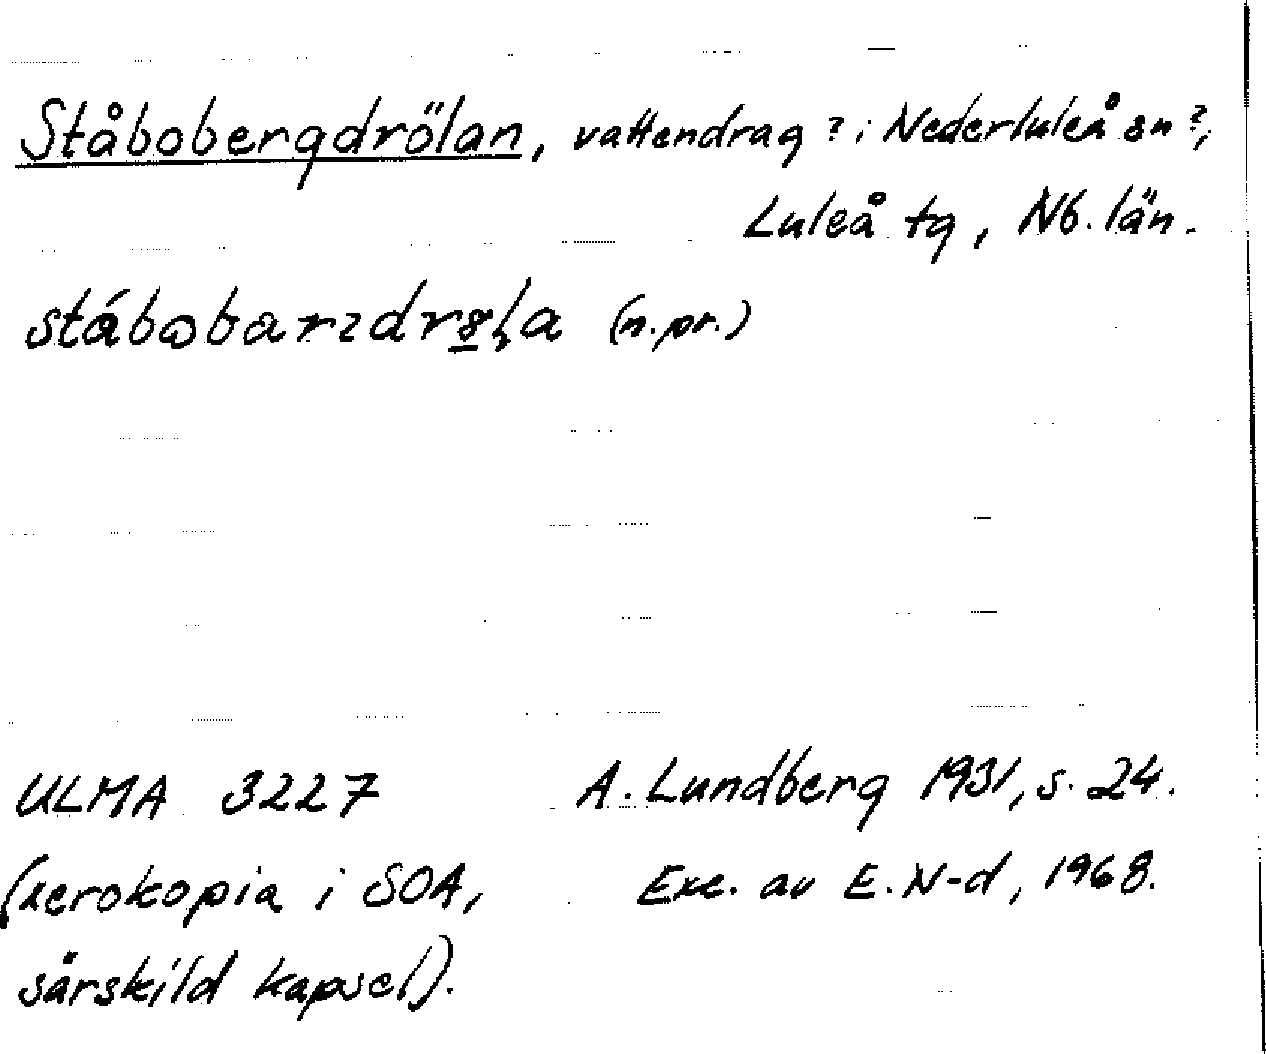 Ståbobergdrölan, vattendrag? i Nederluleå sn?,
Luleå tg, Nb. län.
(n.pr.)
ULMA 3227 A. Lundberg 1931, s. 24.
(xerokopia i SOA, Exc. av E. N-d, 1968.
särskild kapsel).